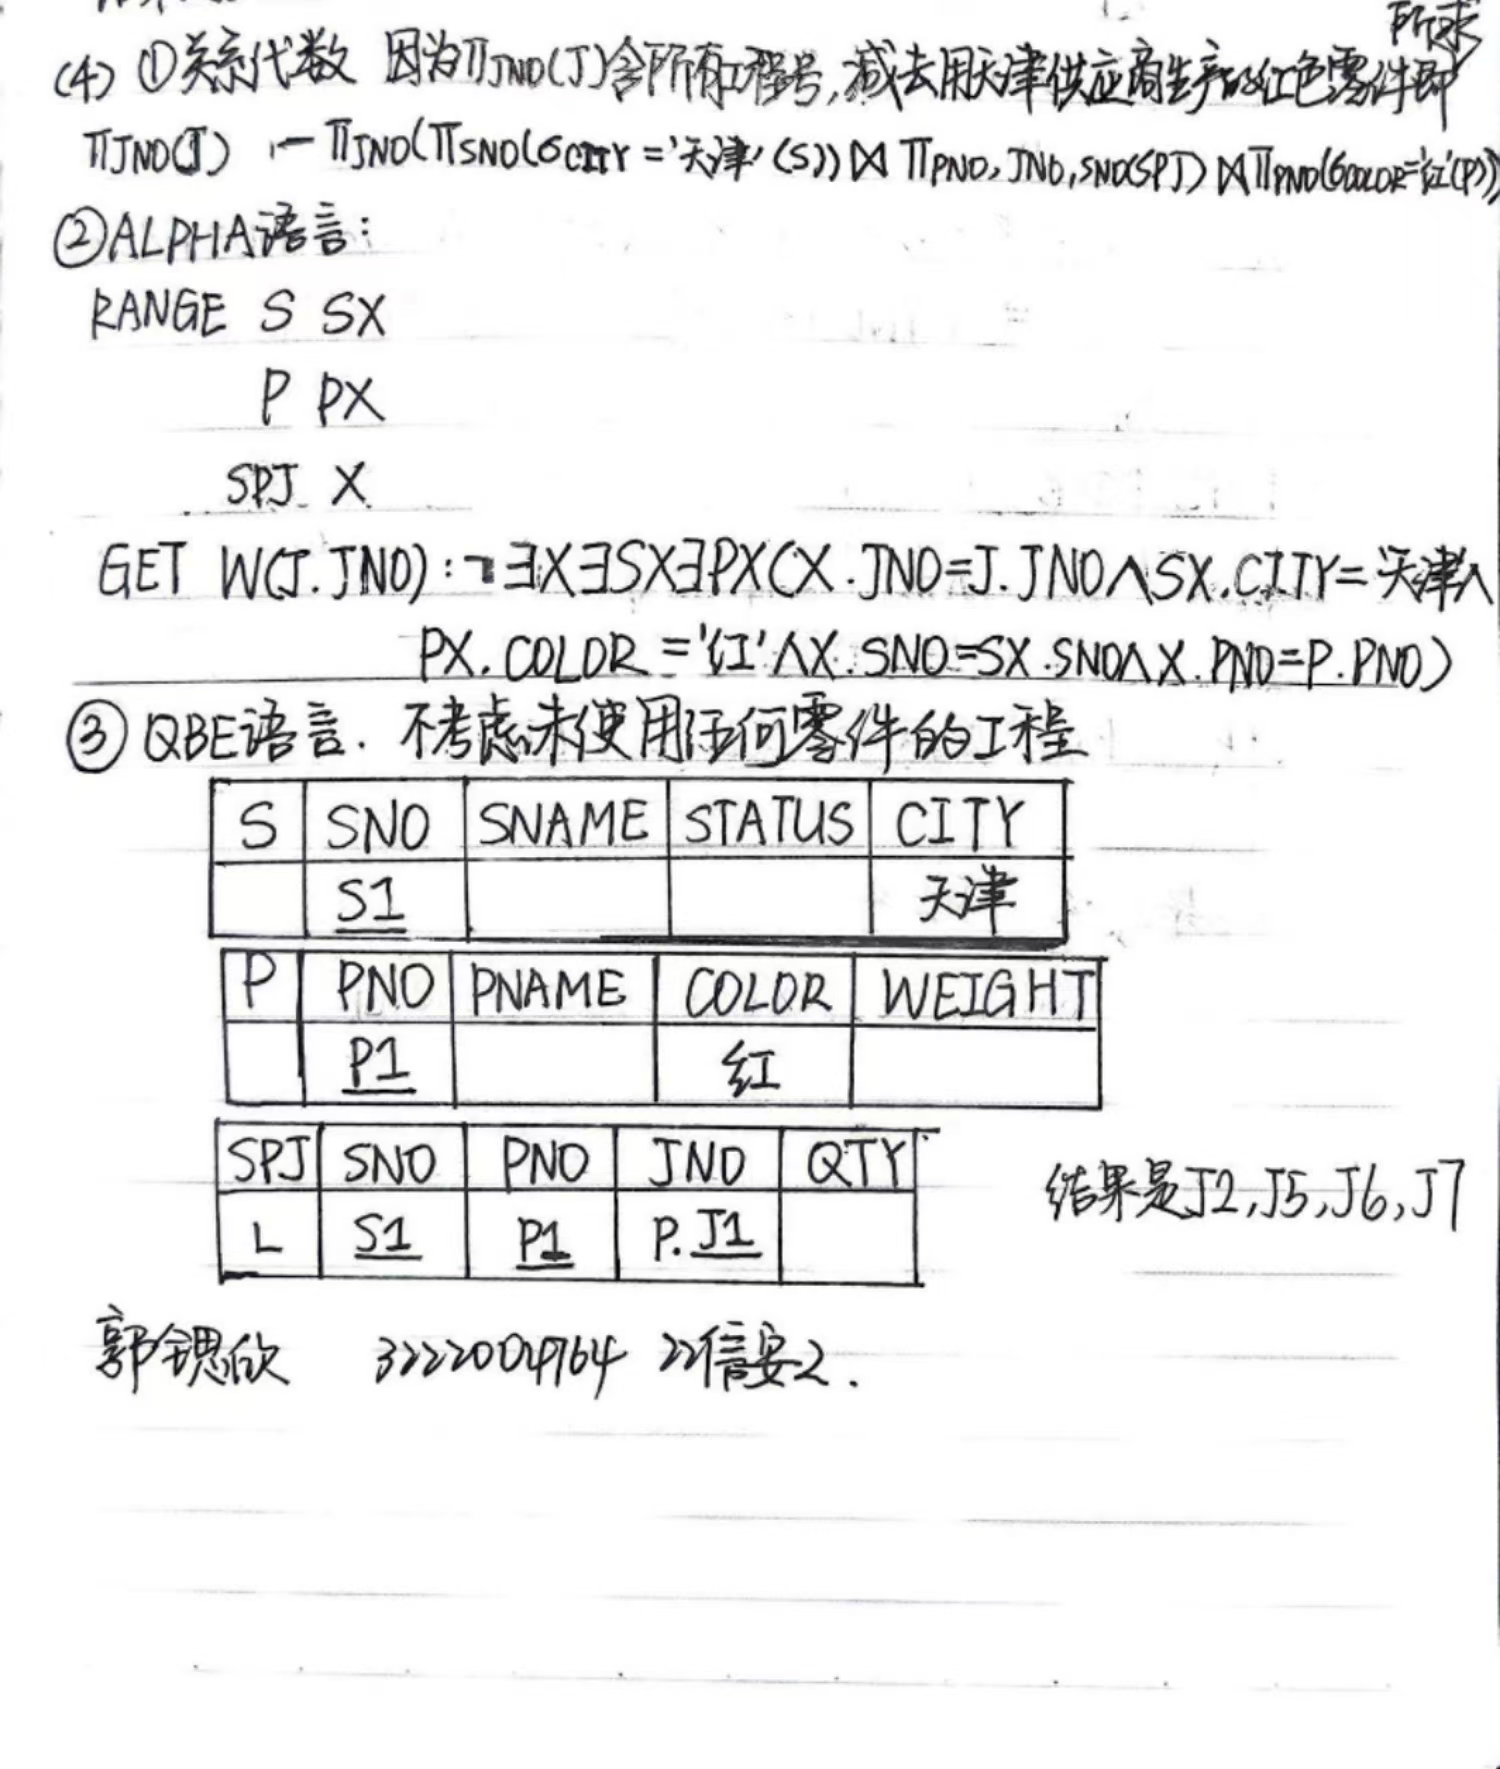 所求
(4) ①关系代数 因为πJNO(J)含所有工程号,减去用天津供应商生产的红色零件即
πJNO(J) - πJNO(πSNO(σCITY='天津'(S))⋈πPNO,JNO,SNO(SPJ)⋈πPNO(σCOLOR='红'(P)))
②ALPHA语言:
RANGE S SX
P PX
SPJ X
GET W(J.JNO):¬∃X∃SX∃PX(X.JNO=J.JNO∧SX.CITY='天津'∧
PX.COLOR='红'∧X.SNO=SX.SNO∧X.PNO=P.PNO)
③QBE语言. 不考虑未使用任何零件的工程
S SNO SNAME STATUS CITY
S1 天津
P PNO PNAME COLOR WEIGHT
P1 红
SPJ SNO PNO JNO QTY
L S1 P1 P.J1
结果是J2,J5,J6,J7
郭锶欣 3222004764 22信安2.